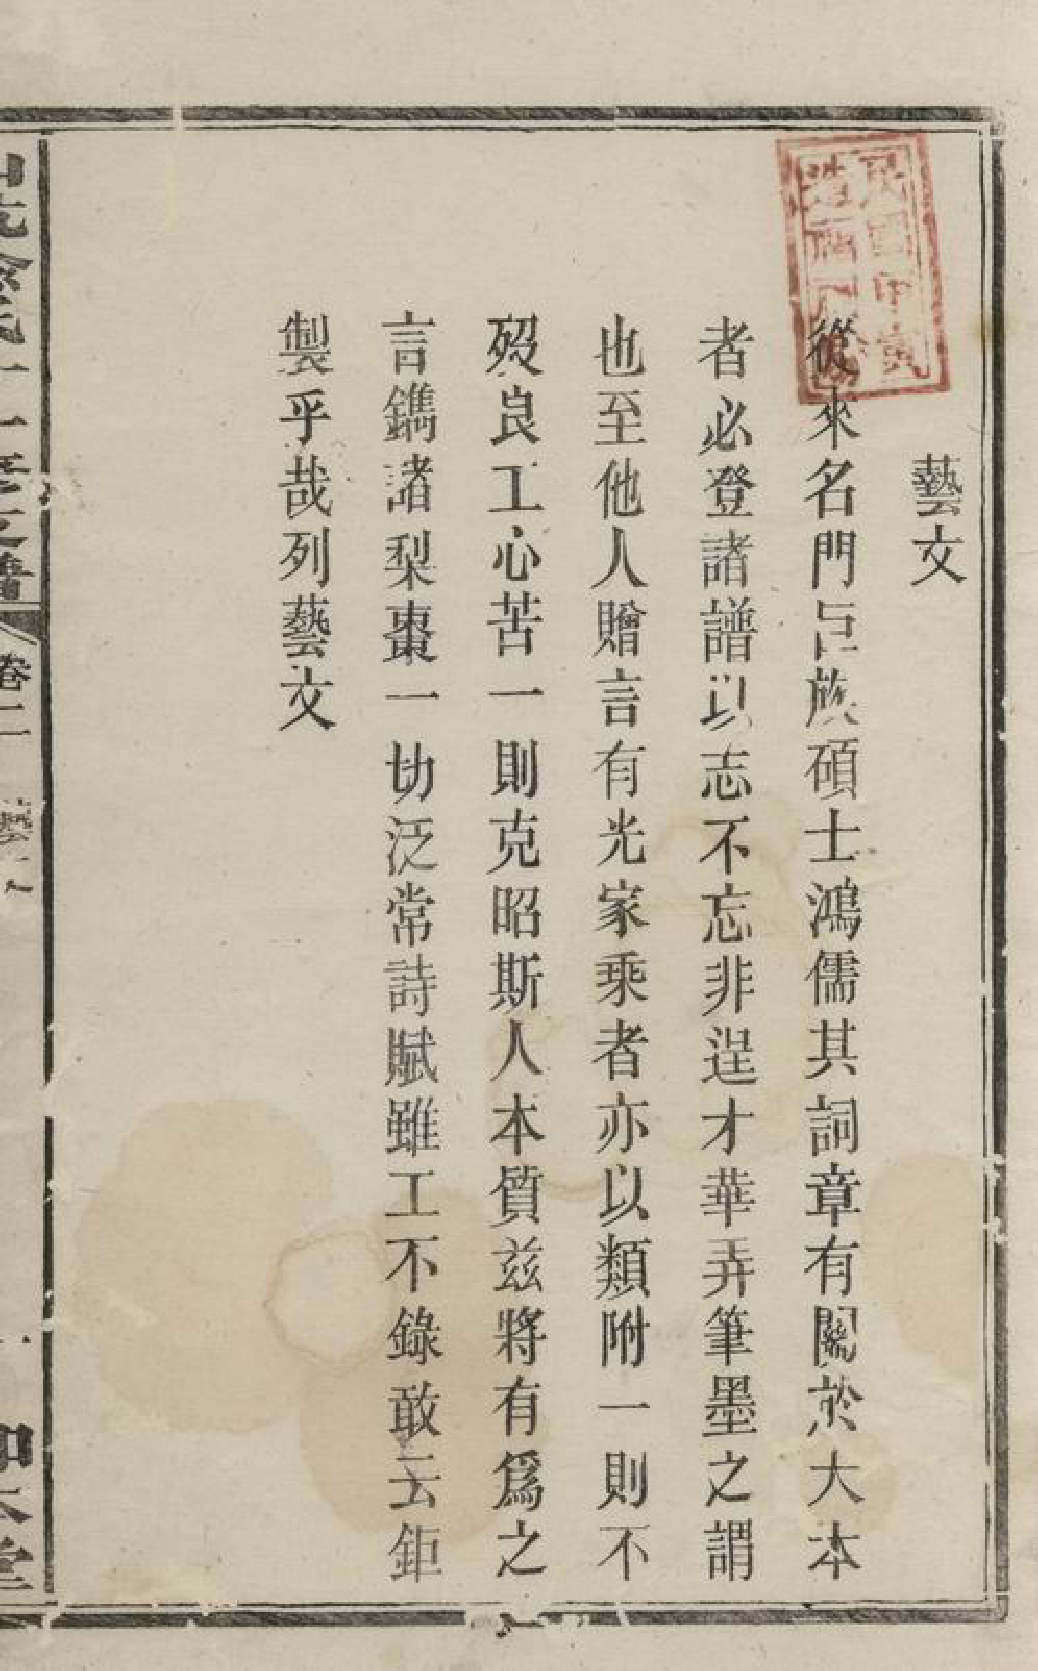 藝文
從來名門巨族碩士鴻儒其詞章有關於大本
者必登諸譜以志不忘非逞才華弄筆墨之謂
也至他人贈言有光家乘者亦以類附一則不
歿良工心苦一則克昭斯人本質兹將有爲之
言鐫諸梨棗一切泛常詩賦雖工不錄敢云鉅
製乎哉列藝文
民國甲寅
卷二
藝文